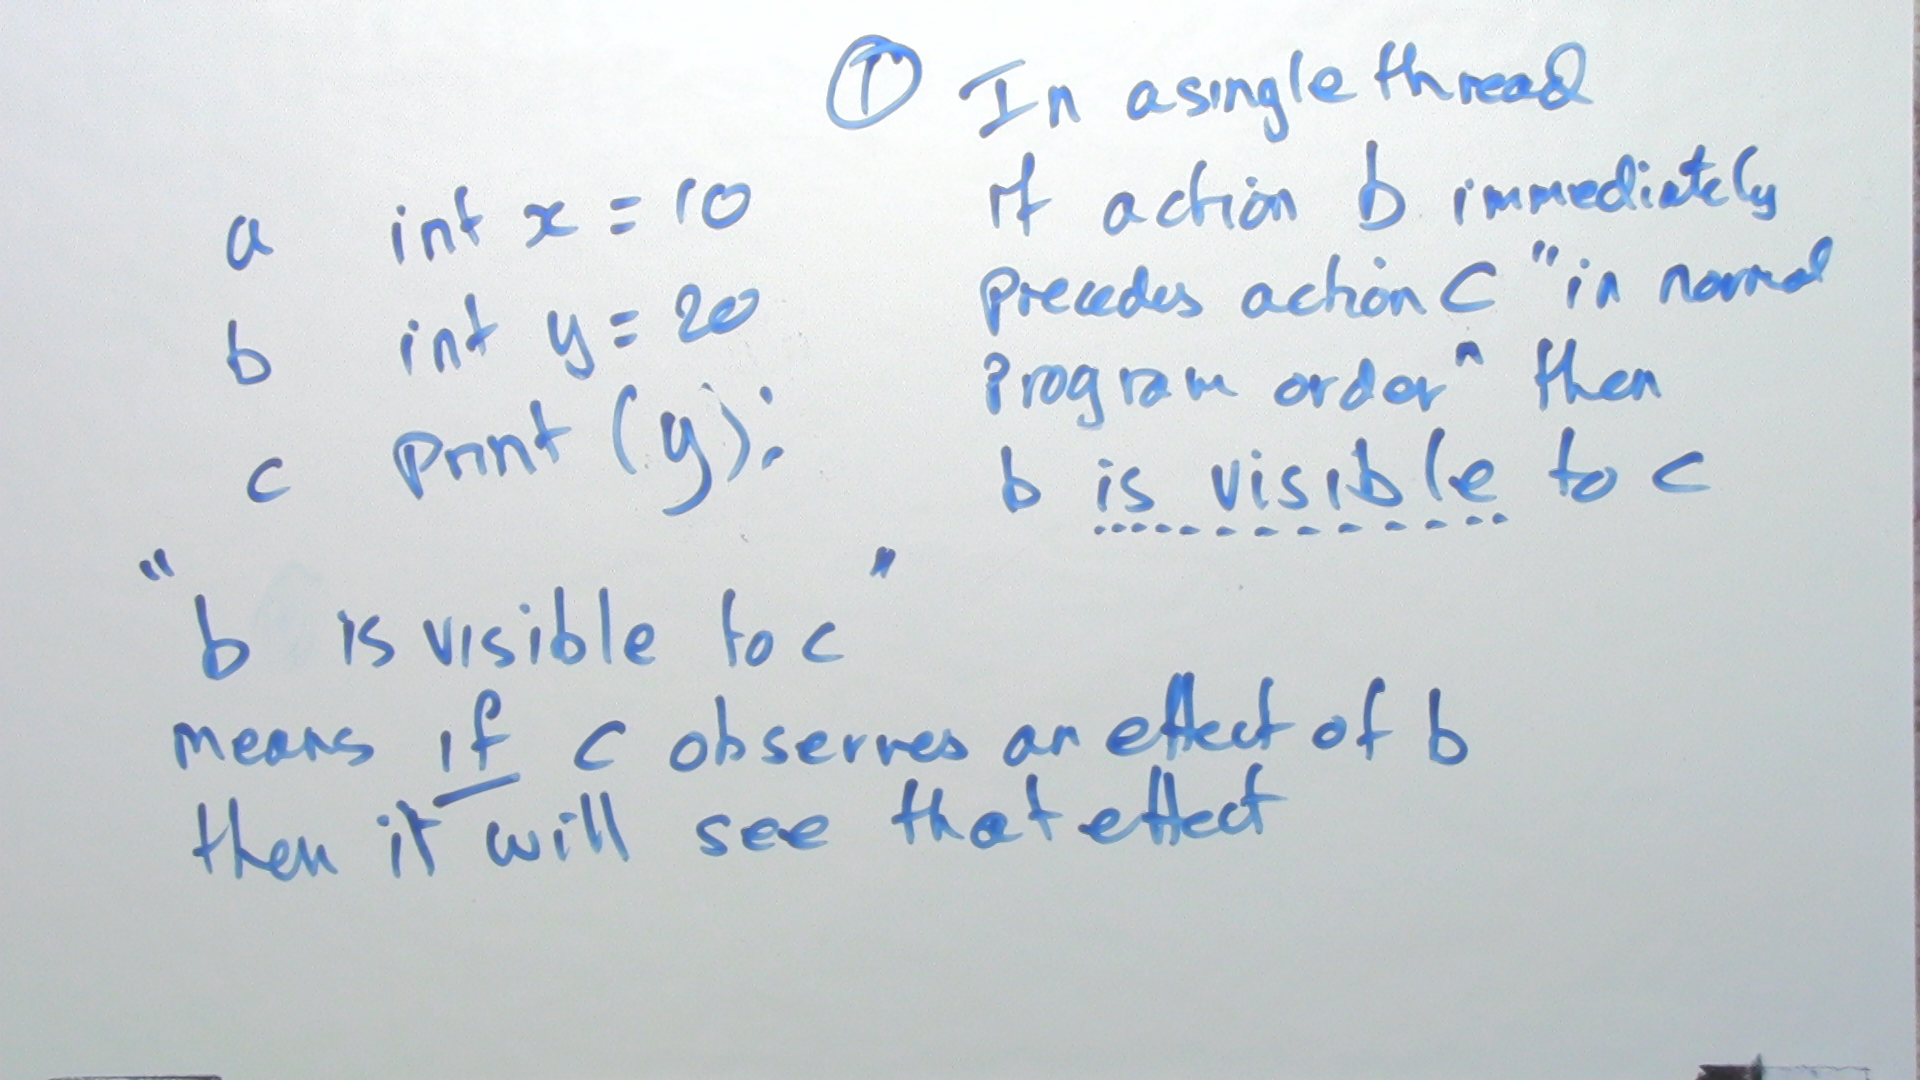 a int x = 10
b int y = 20
c print (y);
① In a single thread
if action b immediately
precedes action C "in normal
program order" then
b is visible to c
"b is visible to c"
means if c observes an effect of b
then it will see that effect